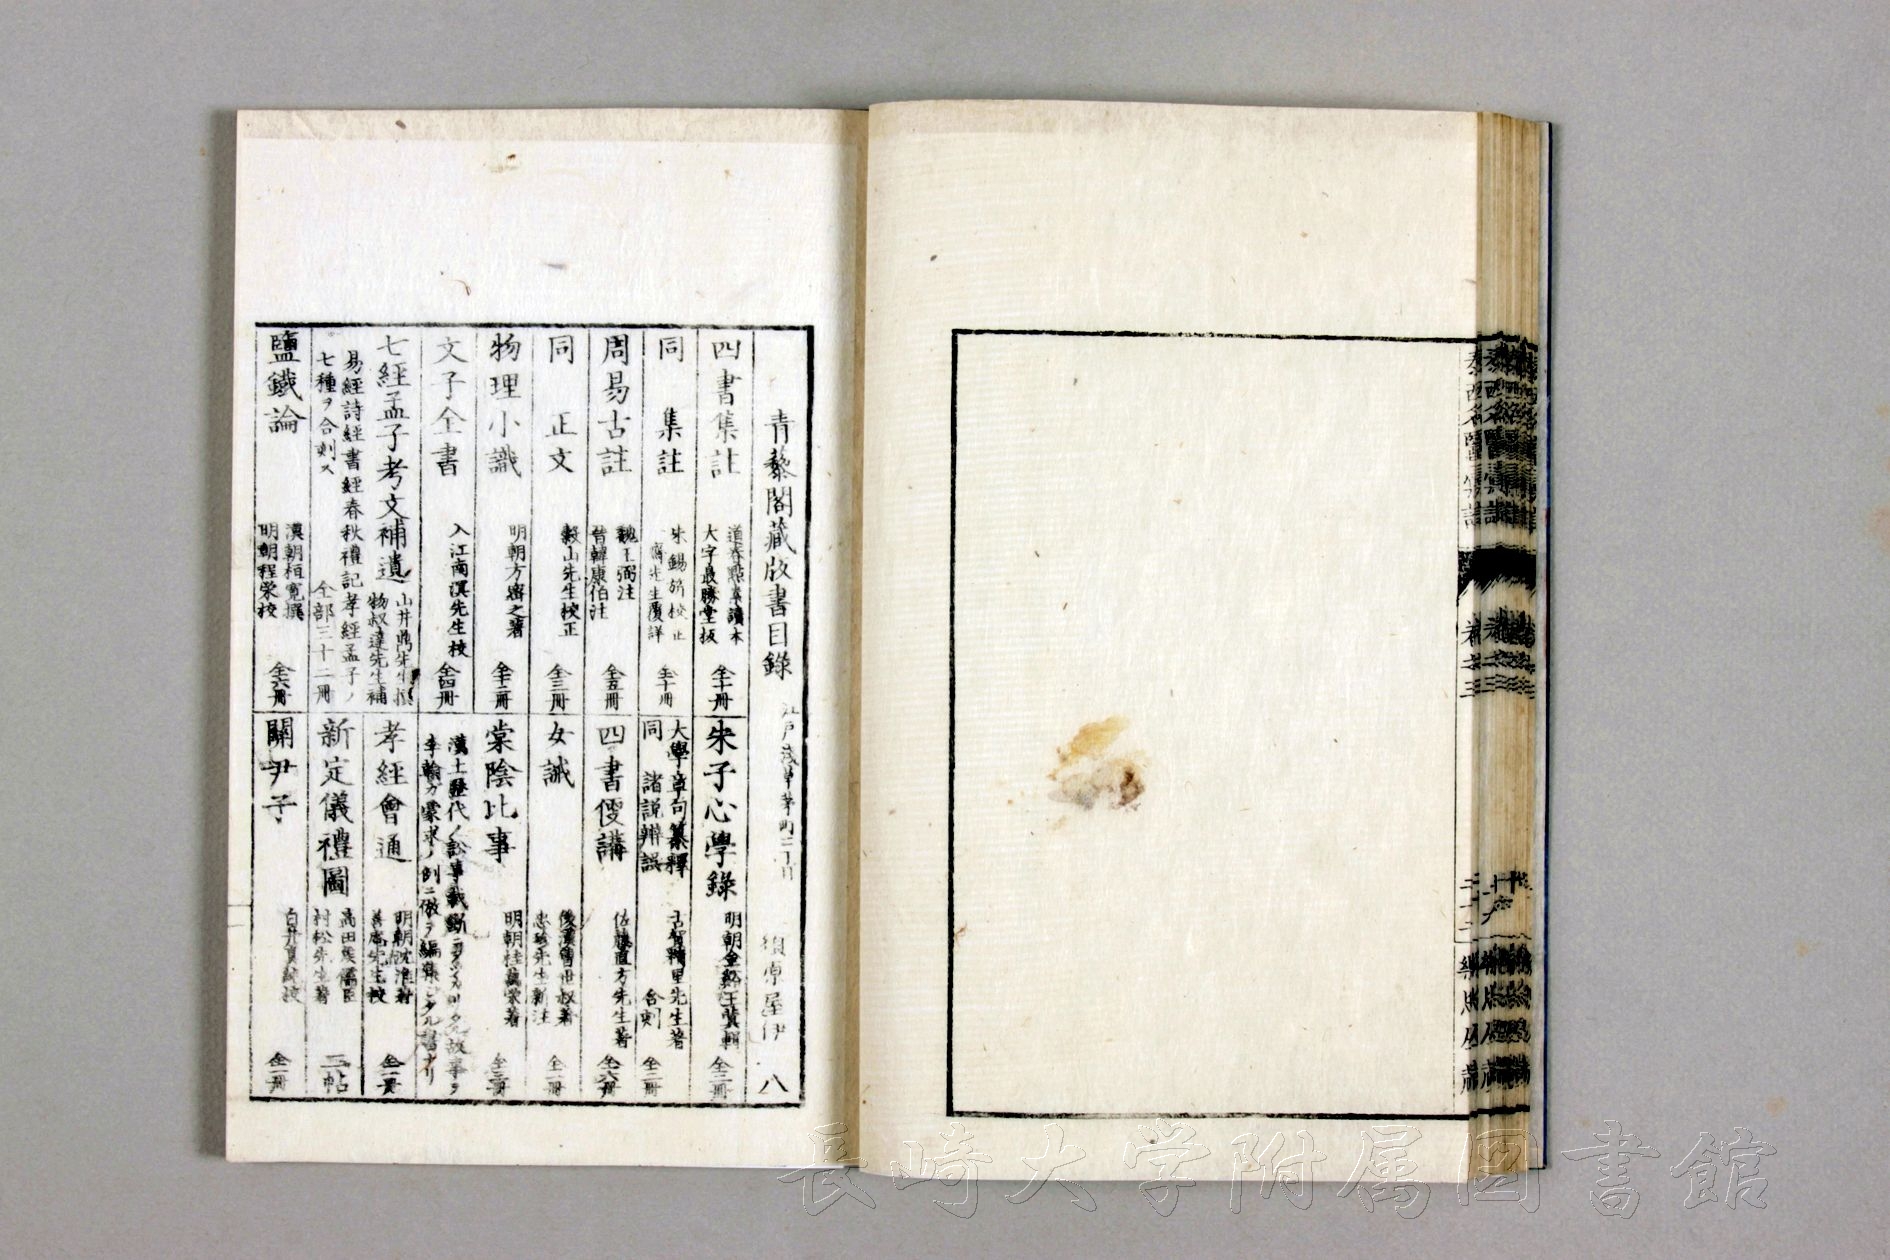 泰西名醫彙講
青藜閣蔵版書目錄
江戸浅草茅町二丁目
須原屋伊八
四書集註
道春點素讀本
大字最勝堂板
全十冊
同 集註
朱錫旂校正
齋先生覆詳
全十冊
周易古註
魏王弼注
晉韓康伯注
全五冊
同 正文
穀山先生校正
全三冊
物理小識
明朝方密之著
全十二冊
文子全書
入江南溟先生校
全四冊
七經孟子考文補遺
山井鼎先生撰
物叔達先生補
易經詩經書經春秋禮記孝經孟子ノ
七種ヲ合刻ス
全部三十二冊
鹽鐵論
漢朝桓寬撰
明朝程榮校
全六冊
朱子心學錄
明朝金谿王蓂輯
全三冊
大學章句纂釋
同 諸説辨誤
古賀精里先生著
合刻
全二冊
四書便講
佐藤直方先生著
全六冊
女誡
後漢曹世叔著
忠珍先生新注
全一冊
棠陰比事
明朝桂萬榮著
全三冊
漢土歴代ノ訟事裁斷
故事ヲ
李翰カ蒙求ノ例ニ倣ヲ編集シタル書ナリ
孝經會通
明朝沈淮著
善庵先生校
全一冊
新定儀禮圖
高田侯儒臣
村松先生著
二帖
關尹子
白井
校
全一冊
長崎大学附属図書館